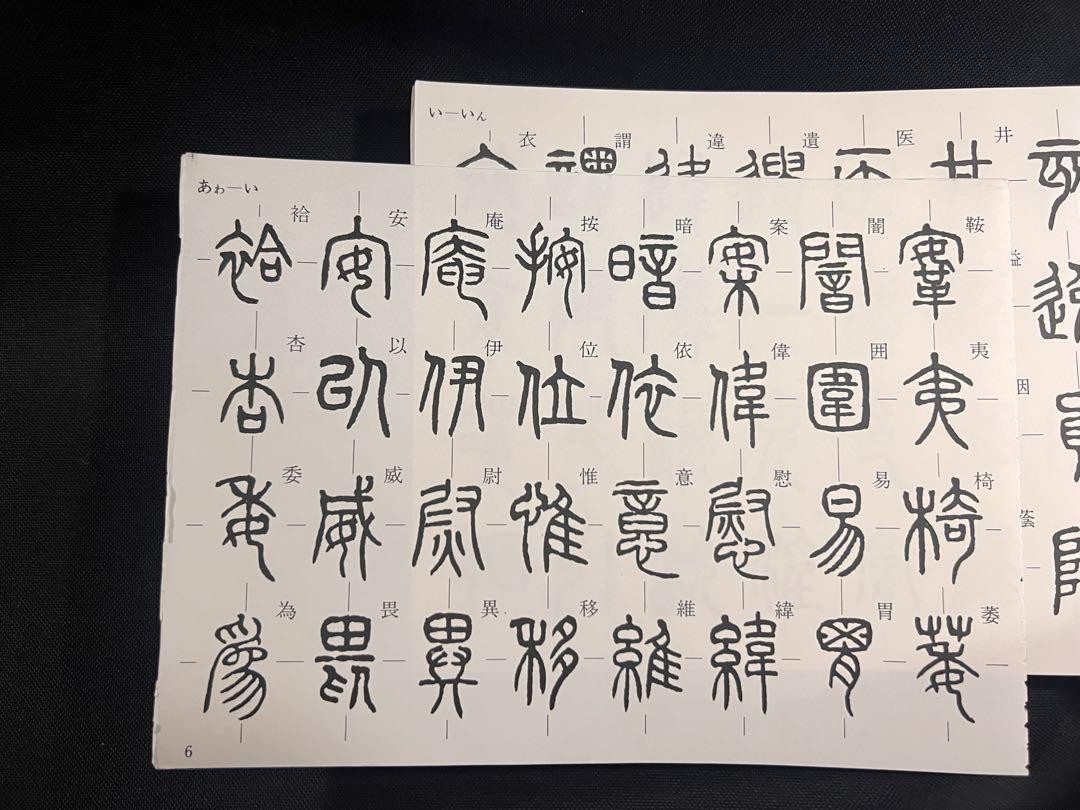 いーいん
衣 謂 違 遺 医 井
因
あゎーい
袷 安 庵 按 暗 案 闇 鞍
杏 以 伊 位 依 偉 囲 夷
委 威 尉 惟 意 慰 易 椅
為 畏 異 移 維 緯 胃 萎
6